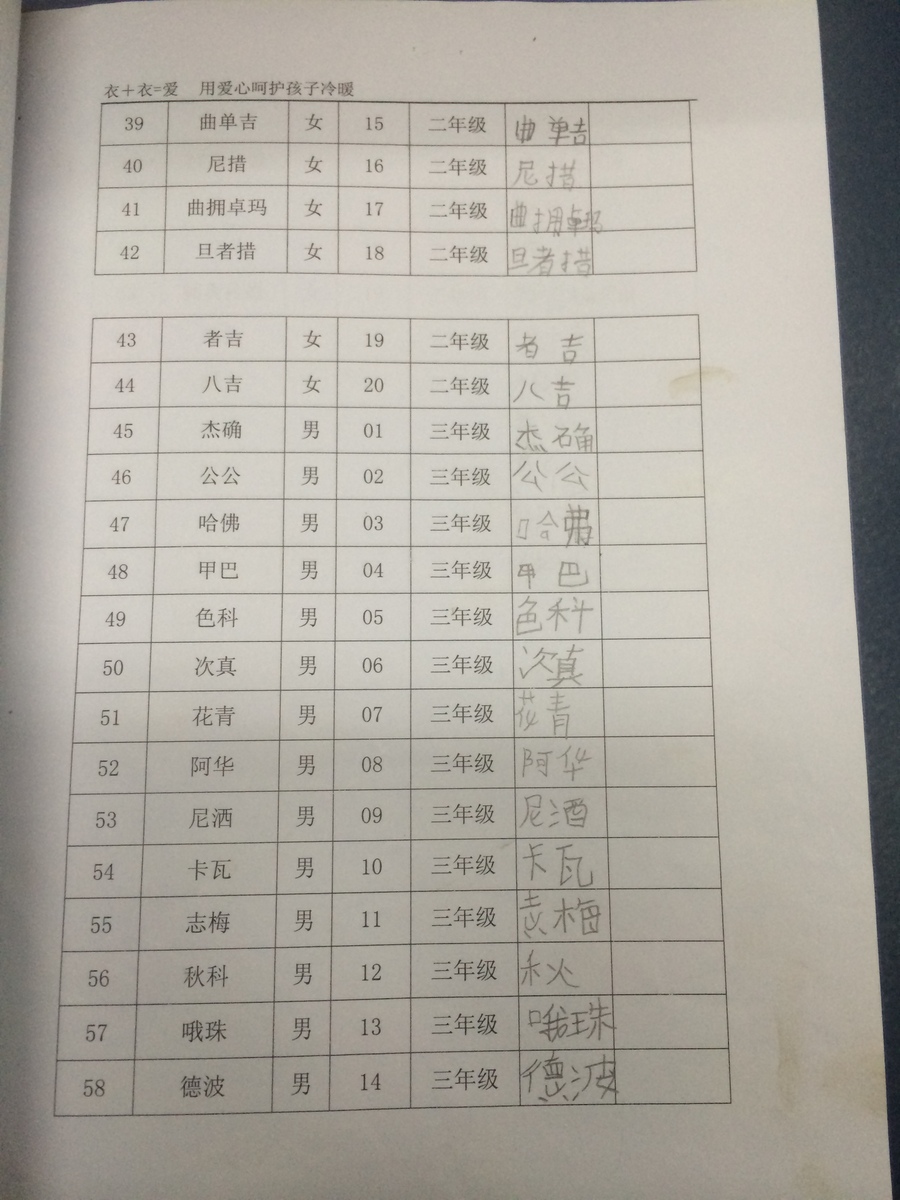 衣+衣=爱 用爱心呵护孩子冷暖
39 曲单吉 女 15 二年级 曲单吉
40 尼措 女 16 二年级 尼措
41 曲拥卓玛 女 17 二年级 曲拥卓玛
42 旦者措 女 18 二年级 旦者措
43 者吉 女 19 二年级 者吉
44 八吉 女 20 二年级 八吉
45 杰确 男 01 三年级 杰确
46 公公 男 02 三年级 公公
47 哈佛 男 03 三年级 哈弗
48 甲巴 男 04 三年级 甲巴
49 色科 男 05 三年级 色科
50 次真 男 06 三年级 次真
51 花青 男 07 三年级 花青
52 阿华 男 08 三年级 阿华
53 尼洒 男 09 三年级 尼酒
54 卡瓦 男 10 三年级 卡瓦
55 志梅 男 11 三年级 志梅
56 秋科 男 12 三年级 秋
57 哦珠 男 13 三年级 哦珠
58 德波 男 14 三年级 德波